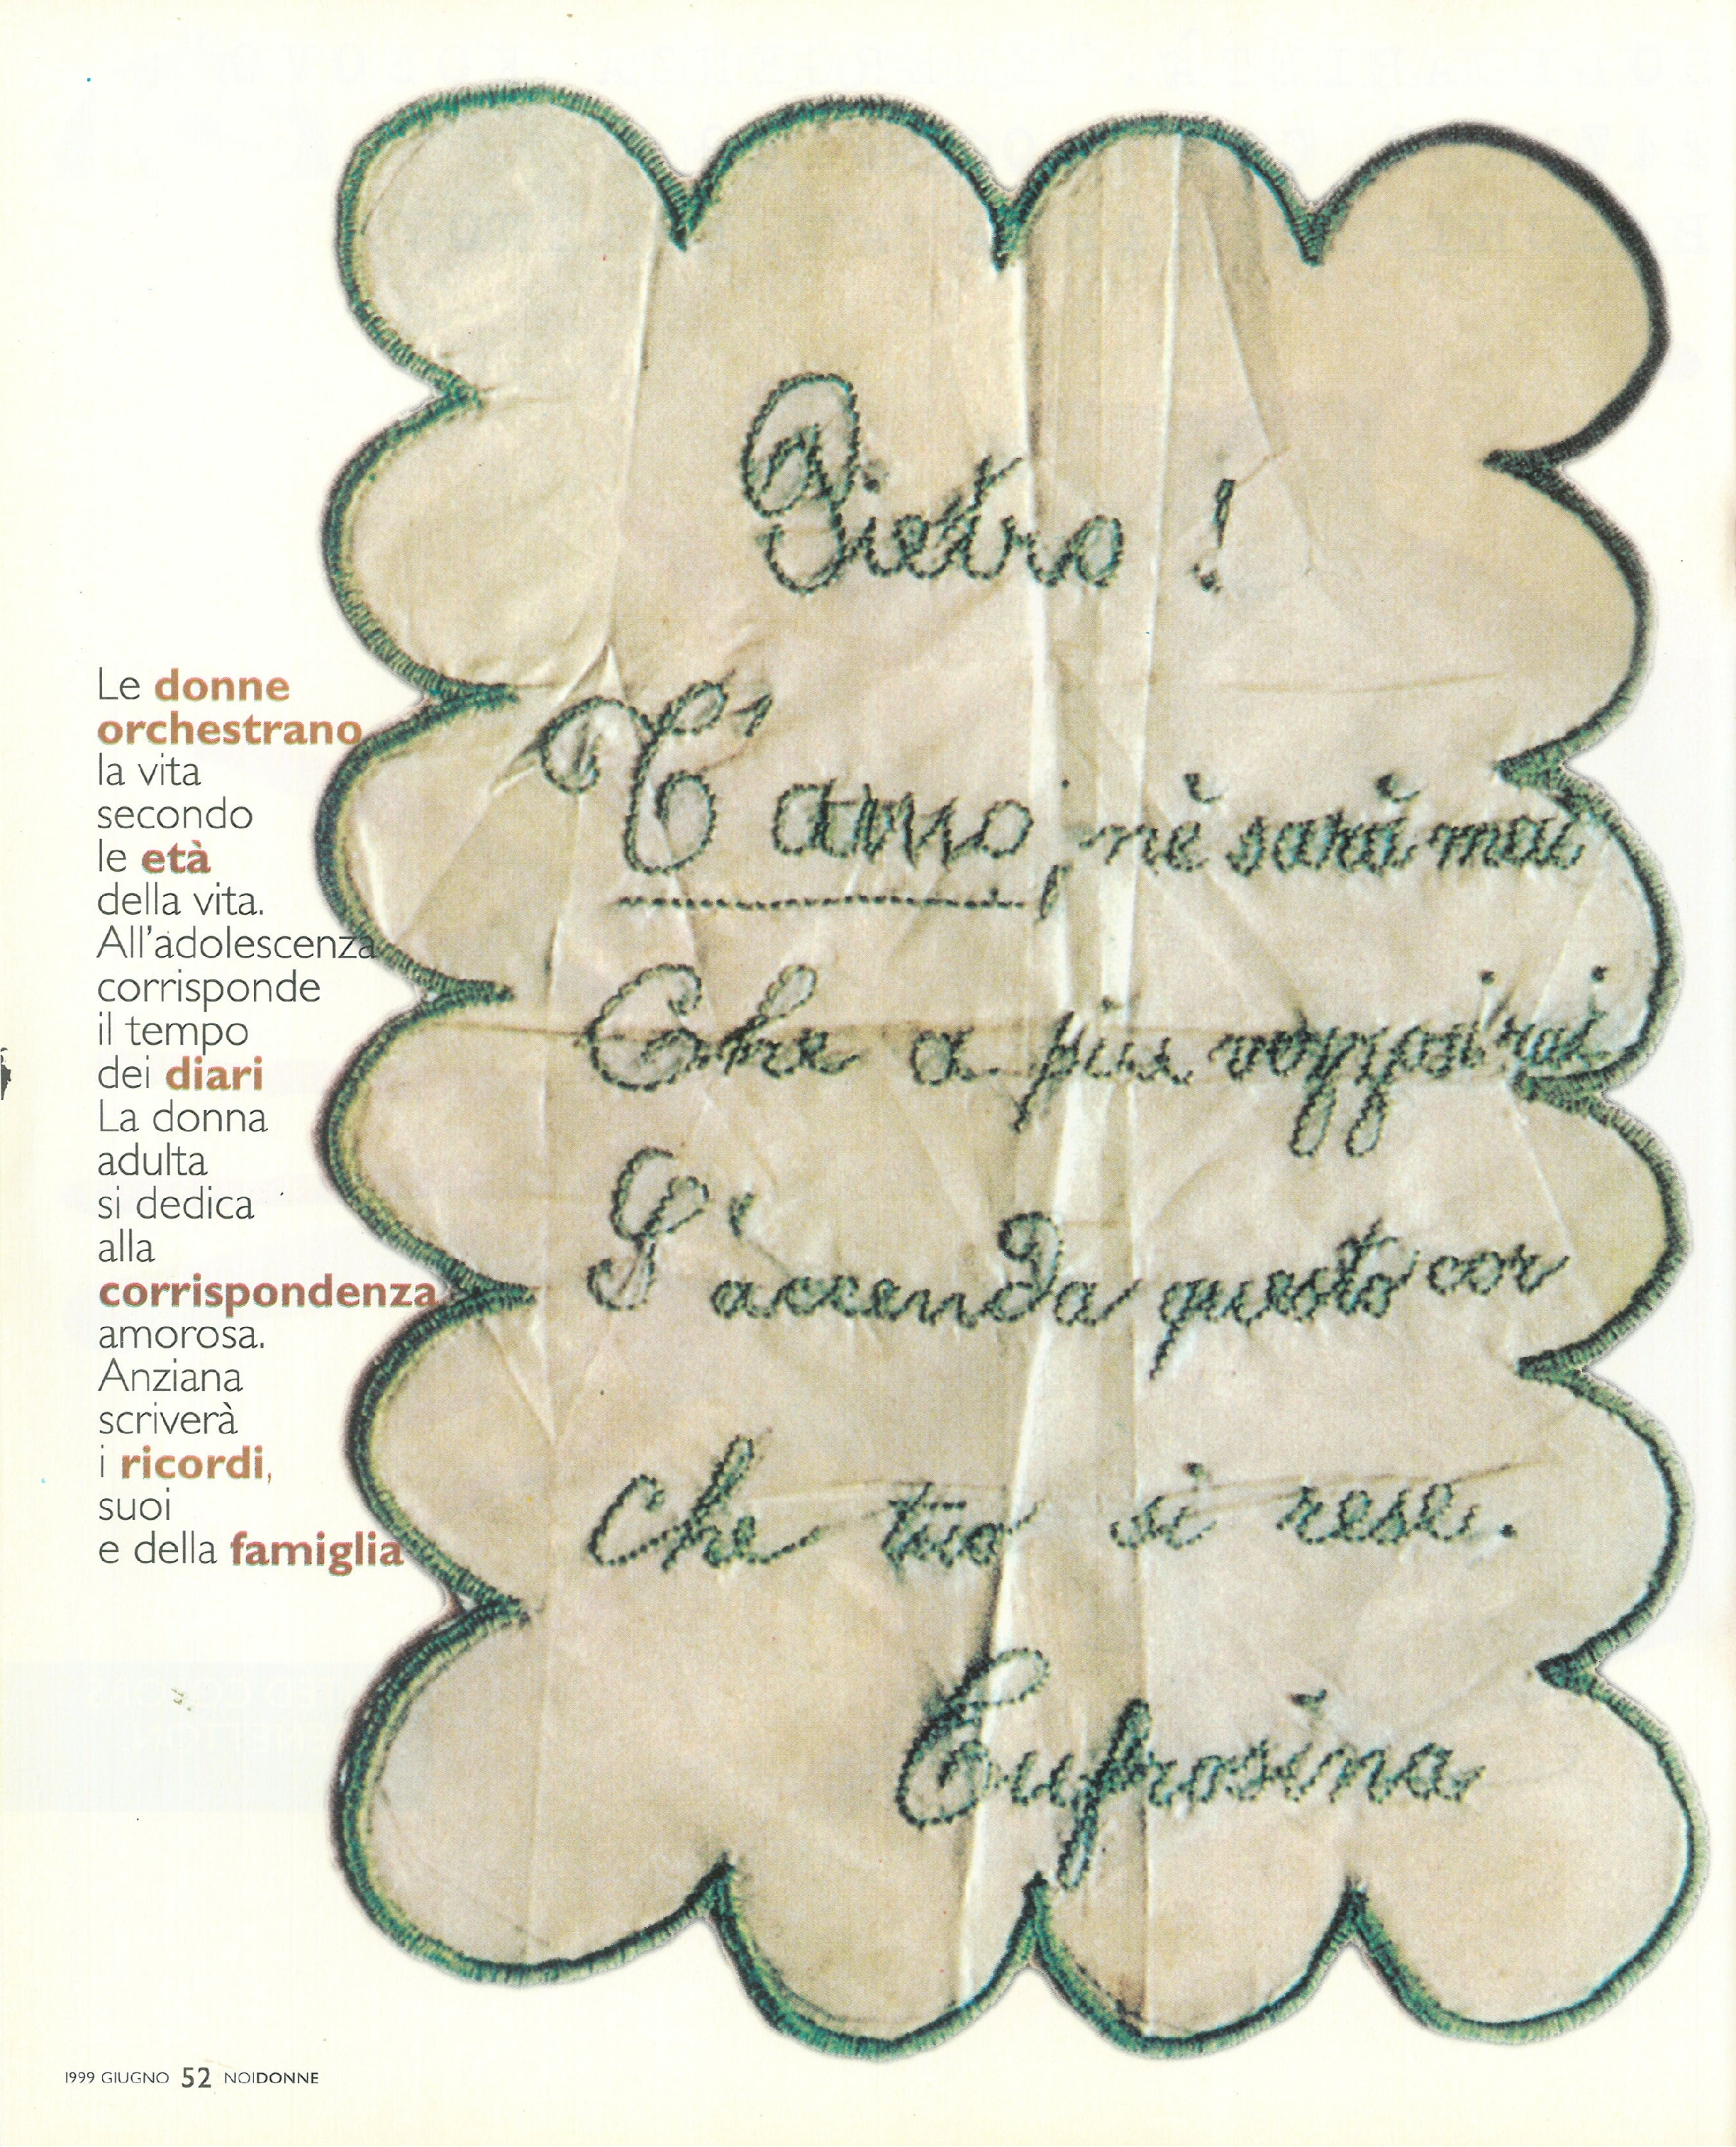 Pietro!
T'amo, nè sarà mai
Che a più vezzosi rai
S'accenda questo cor
che tuo si rese.
Eufrosina
Le donne
orchestrano
la vita
secondo
le età
della vita.
All'adolescenza
corrisponde
il tempo
dei diari
La donna
adulta
si dedica
alla
corrispondenza
amorosa.
Anziana
scriverà
i ricordi,
suoi
e della famiglia
1999 GIUGNO 52 NOIDONNE